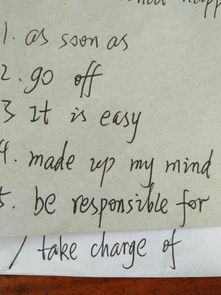 1. as soon as
2. go off
3 It is easy
4. made up my mind
5. be responsible for
/ take charge of